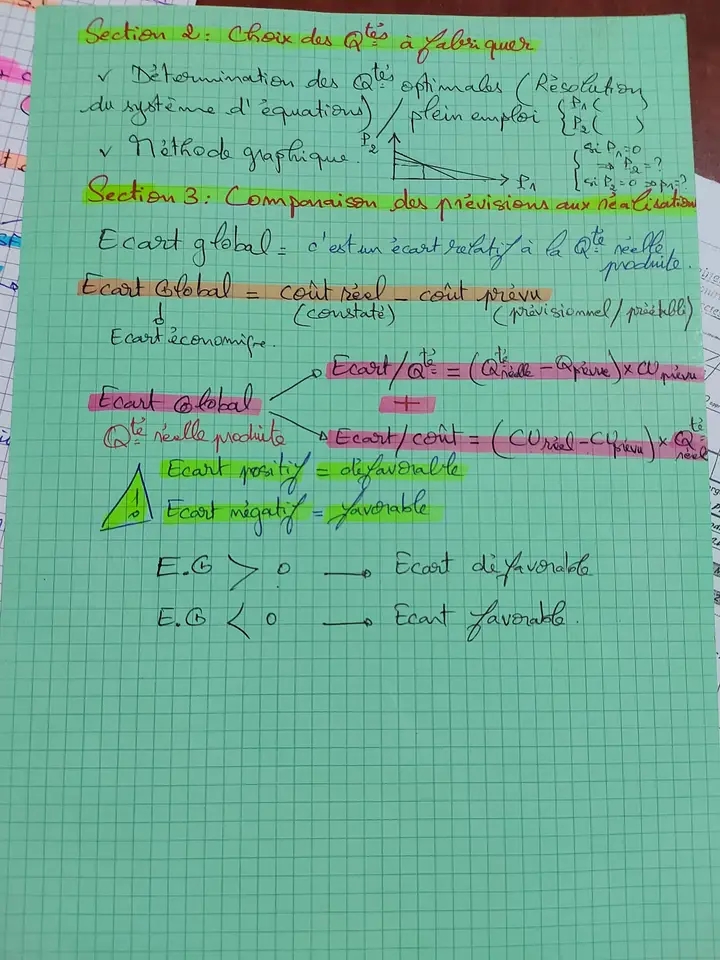 Section 2 : Choix des Qtés à fabriquer
✓ Détermination des Qtés optimales (Résolution
du système d'équations) / plein emploi { P1 (
P2 ( )
✓ Méthode graphique. P2 P1
si P1=0
⇒ P2 = ?
si P2=0 ⇒ P1=?
Section 3 : Comparaison des prévisions aux réalisation
Ecart global = c'est un écart relatif à la Qté réelle
produite.
Ecart Global = coût réel - coût prévu
(constaté) (prévisionnel / préétabli)
Ecart économique.
Ecart/Qté = (Qté réelle - Q prévue) × CU prévu
Ecart Global +
Qté réelle produite
Ecart/coût = (CU réel - CU prévu) × Qté réel
Ecart positif = défavorable
Ecart négatif = favorable
E.G > 0 → Ecart défavorable
E.G < 0 → Ecart favorable.